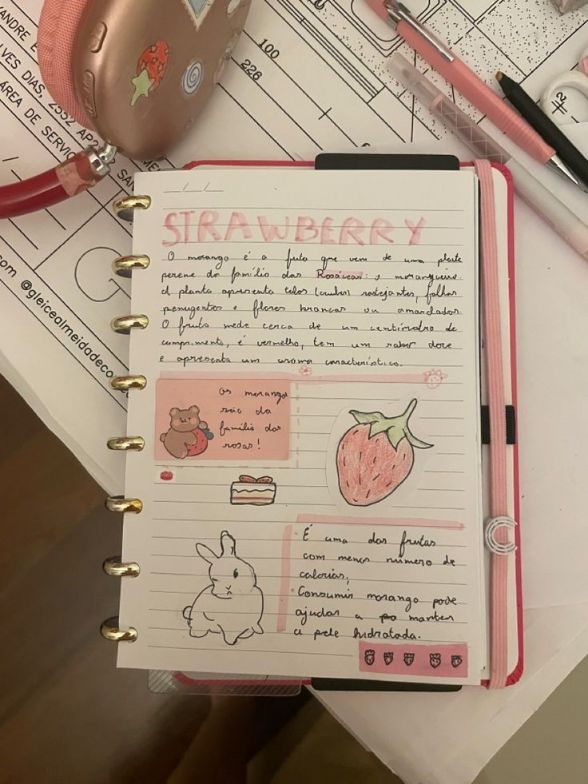 ANDRE E
VES DIAS, 2552 AP202 SAN
ÁREA DE SERVIÇ
100
226
G
com @gleicealmeidadeco
STRAWBERRY
O morango é a fruta que vem de uma planta
perene da família das Rosáceas: o morangueiro
A planta apresenta talos (caules) rastejantes, folhas
penugentas e flores brancas ou amareladas
O fruto mede cerca de um centímetro de
comprimento, é vermelho, tem um sabor doce
e apresenta um aroma característico.
os morangos
são da
família das
rosas!
É uma das frutas
com menos número de
calorias;
Consumir morango pode
ajudar a manter
a pele hidratada.